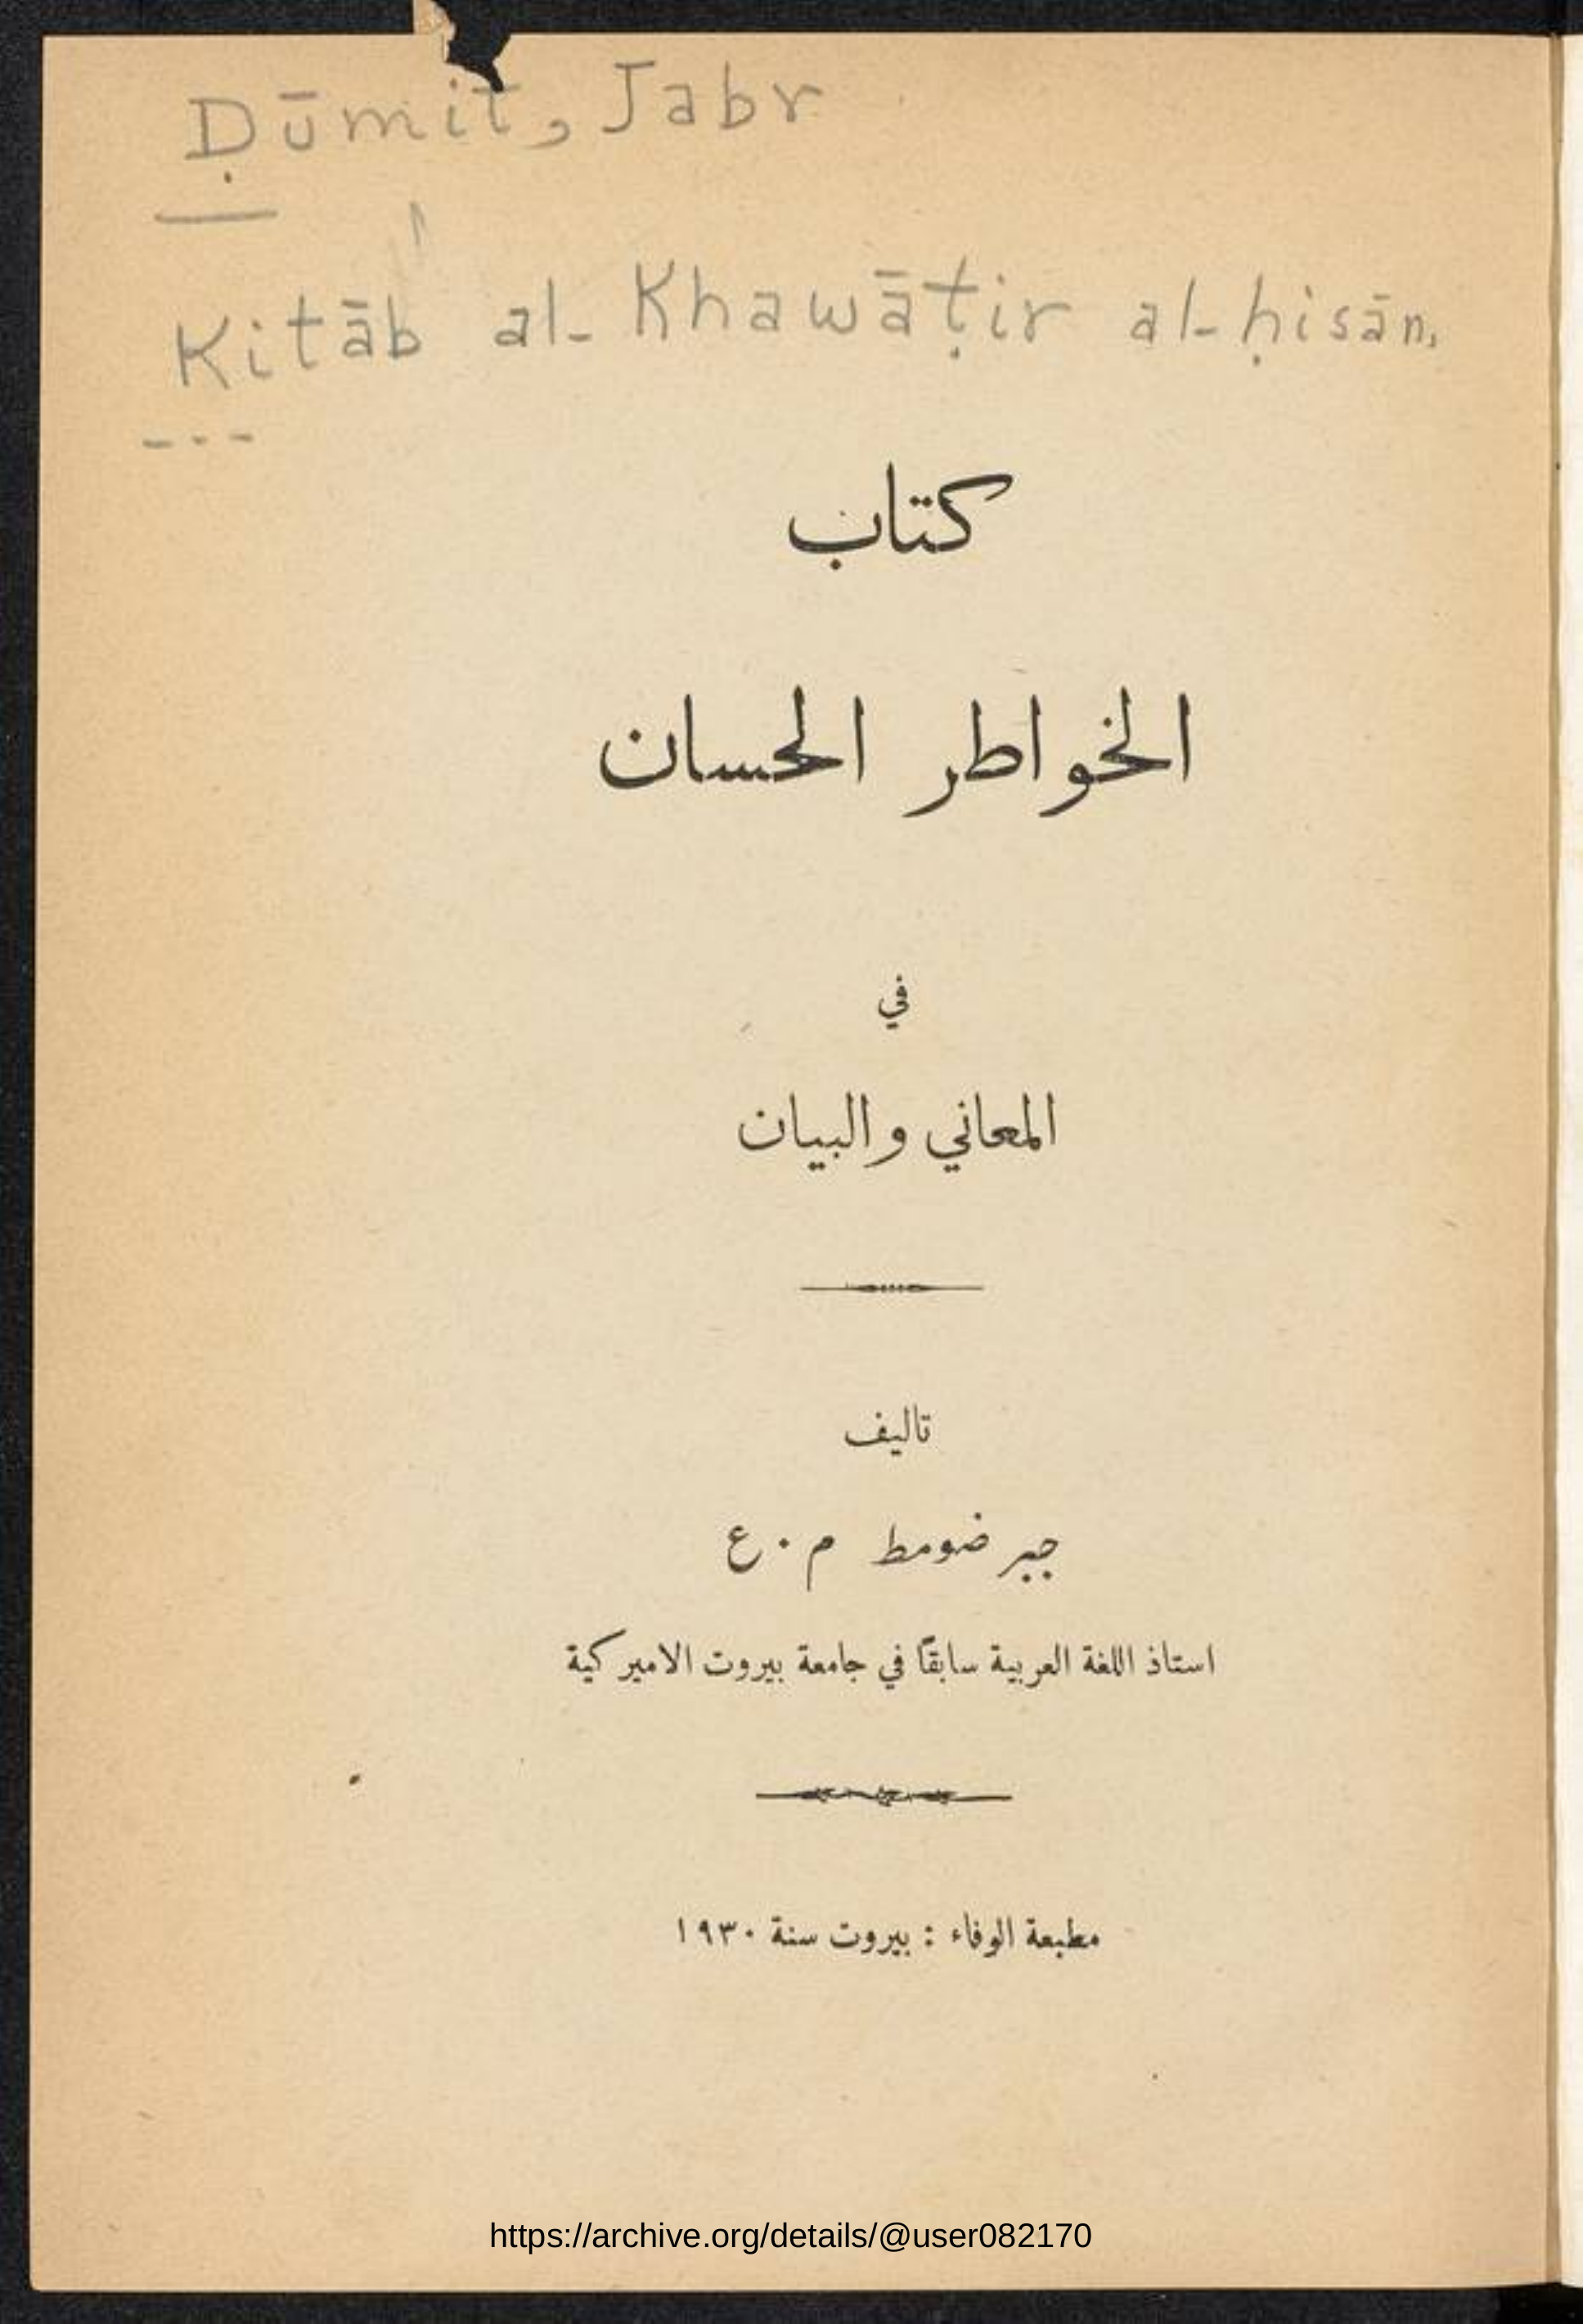 Ḍūmiṭ, Jabr
Kitāb al-Khawāṭir al-ḥisān,
كتاب
الخواطر الحسان
في
المعاني والبيان
تاليف
جبر ضومط م٠ع
استاذ اللغة العربية سابقًا في جامعة بيروت الاميركية
مطبعة الوفاء : بيروت سنة ١٩٣٠
https://archive.org/details/@user082170